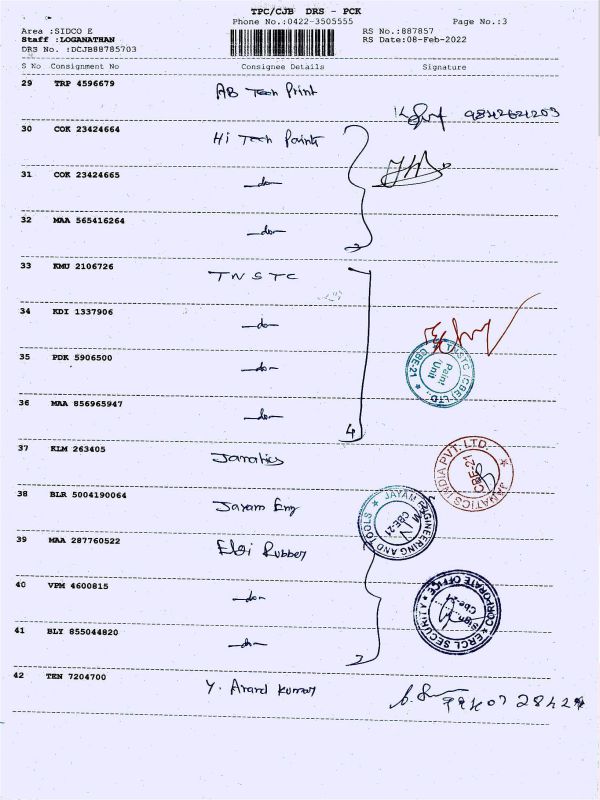 TPC/CJB DRS - PCK
Phone No.:0422-3505555 Page No.:3
Area :SIDCO E RS No.:887857
Staff :LOGANATHAN RS Date:08-Feb-2022
DRS No. :DCJB88785703
S No Consignment No Consignee Details Signature
29 TRP 4596679 AB Tech Print
30 COK 23424664 Hi Tech Paints
31 COK 23424665 —do—
32 MAA 565416264 —do—
33 KMU 2106726 TNSTC
34 KDI 1337906 —do—
35 PDK 5906500 —do—
TNSTC (CBE) LTD. CBE-21
Paint Unit
36 MAA 856965947 —do—
4
37 KLM 263405 Janatics
JANATICS INDIA PVT. LTD.
CBE-21
38 BLR 5004190064 Jayam Eng
JAYAM ENGINEERING AND TOOLS
CBE-21
39 MAA 287760522 Elgi Rubber
40 VPM 4600815 —do—
ERCL SECURITY CORPORATE OFFICE
Sign
Cbe-21
41 BLY 855044820 —do—
42 TEN 7204700 Y. Anand Kumar